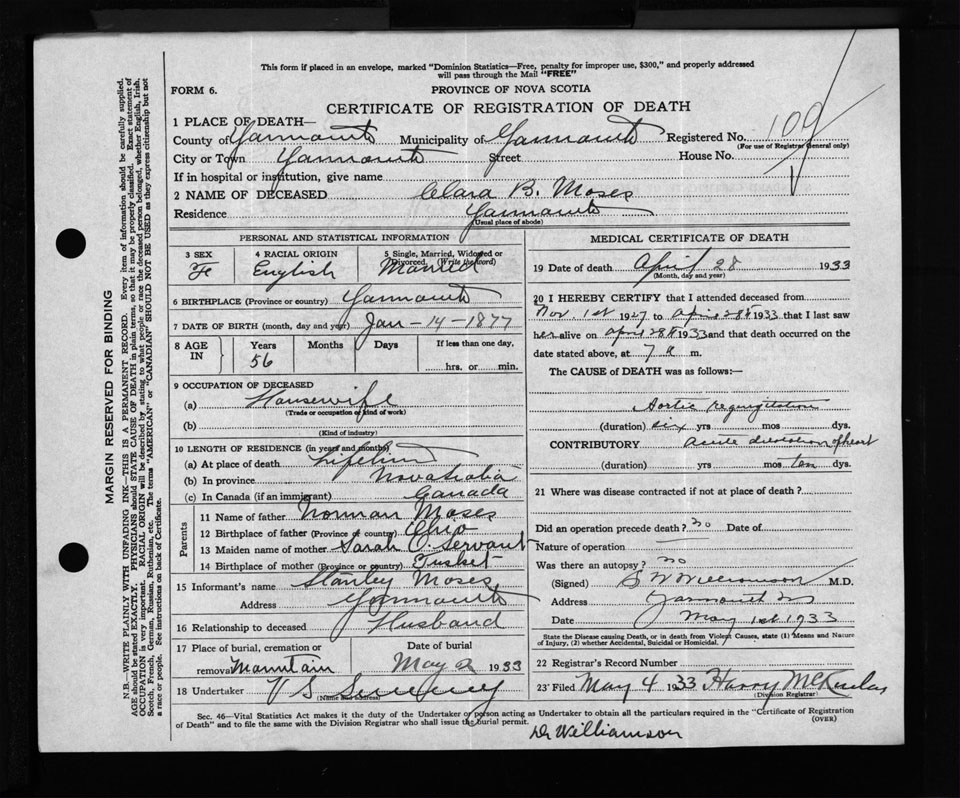 This form if placed in an envelope, marked "Dominion Statistics—Free, penalty for improper use, $300," and properly addressed
will pass through the Mail "FREE"
FORM 6.
PROVINCE OF NOVA SCOTIA
CERTIFICATE OF REGISTRATION OF DEATH
1 PLACE OF DEATH—
County of Yarmouth Municipality of Yarmouth Registered No. 109
(For use of Registrar General only)
City or Town Yarmouth Street House No.
If in hospital or institution, give name
2 NAME OF DECEASED Clara B. Moses
Residence Yarmouth
(Usual place of abode)
PERSONAL AND STATISTICAL INFORMATION
3 SEX Fe
4 RACIAL ORIGIN English
5 Single, Married, Widowed or
Divorced (Write the word)
Married
6 BIRTHPLACE (Province or country) Yarmouth
7 DATE OF BIRTH (month, day and year) Jan-14-1877
8 AGE IN Years 56 Months Days If less than one day,
hrs. or min.
9 OCCUPATION OF DECEASED
(a) Housewife
(Trade or occupation or kind of work)
(b)
(Kind of industry)
10 LENGTH OF RESIDENCE (in years and months)
(a) At place of death Lifetime
(b) In province Nova Scotia
(c) In Canada (if an immigrant) Canada
Parents
11 Name of father Norman Moses
12 Birthplace of father (Province or country) Ohio
13 Maiden name of mother Sarah C. Servant
14 Birthplace of mother (Province or country) Tusket
15 Informant's name Stanley Moses
Address Yarmouth
16 Relationship to deceased Husband
17 Place of burial, cremation or
removal Mountain
Date of burial
May 2 1933
18 Undertaker V S Sweeney
(Name and address)
MEDICAL CERTIFICATE OF DEATH
19 Date of death April 28 1933
(Month, day and year)
20 I HEREBY CERTIFY that I attended deceased from
Nov 1st 1927 to April 28th 1933 that I last saw
her alive on April 28th 1933 and that death occurred on
the date stated above, at 7 a m.
The CAUSE of DEATH was as follows:—
Aortic regurgitation
(duration) six yrs mos dys.
CONTRIBUTORY acute dilatation of heart
(duration) yrs mos ten dys.
21 Where was disease contracted if not at place of death?
Did an operation precede death? no Date of
Nature of operation
Was there an autopsy? no
(Signed) S W Williamson M.D.
Address Yarmouth NS
Date May 1st 1933
State the Disease causing Death, or in death from Violent Causes, state (1) Means and Nature
of Injury, (2) whether Accidental, Suicidal or Homicidal.
22 Registrar's Record Number
23 Filed May 4 1933 Harry
(Division Registrar)
Sec. 46—Vital Statistics Act makes it the duty of the Undertaker or person acting as Undertaker to obtain all the particulars required in the "Certificate of Registration
of Death" and to file the same with the Division Registrar who shall issue the burial permit.
(OVER)
Dr Williamson
MARGIN RESERVED FOR BINDING
N.B.—WRITE PLAINLY WITH UNFADING INK—THIS IS A PERMANENT RECORD. Every item of information should be carefully supplied.
AGE should be stated EXACTLY. PHYSICIANS should STATE CAUSE OF DEATH in plain terms, so that it may be properly classified. Exact statement of
OCCUPATION is very important. RACIAL ORIGIN will be described by stating to what people or race the deceased person belonged, whether English, Irish,
Scotch, French, German, Russian, Ruthenian, etc. The terms "AMERICAN" or "CANADIAN" SHOULD NOT BE USED as they express citizenship but not
a race or people. See instructions on back of Certificate.